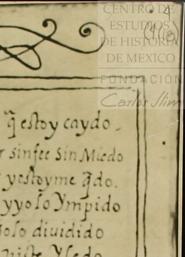 CENTRO DE
ESTUDIOS
DE HISTORIA
DE MEXICO
FUNDACIÓN
Carlos Slim
q̃ estoy caydo.
r sin fee sin Miedo
y estoyme q̃do.
y yo lo ympido
solo dividido